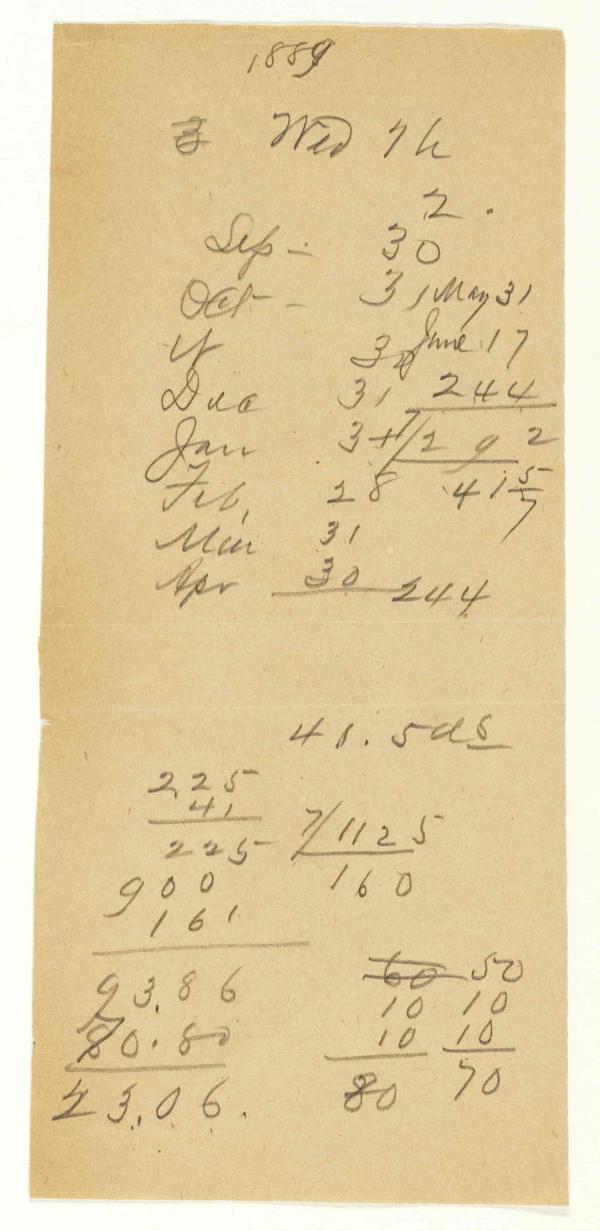 1889
Wed 7th
2.
Sep - 30
Oct - 31 May 31
N 30 June 17
Dec 31 244
Jan 31 7/292
Feb. 28 41 5/7
Mar 31
Apr 30 244
41.5 ds
225
41
225 7/1125
900 160
161
93.86 60 50
70.80 10 10
23.06. 10 10
80 70